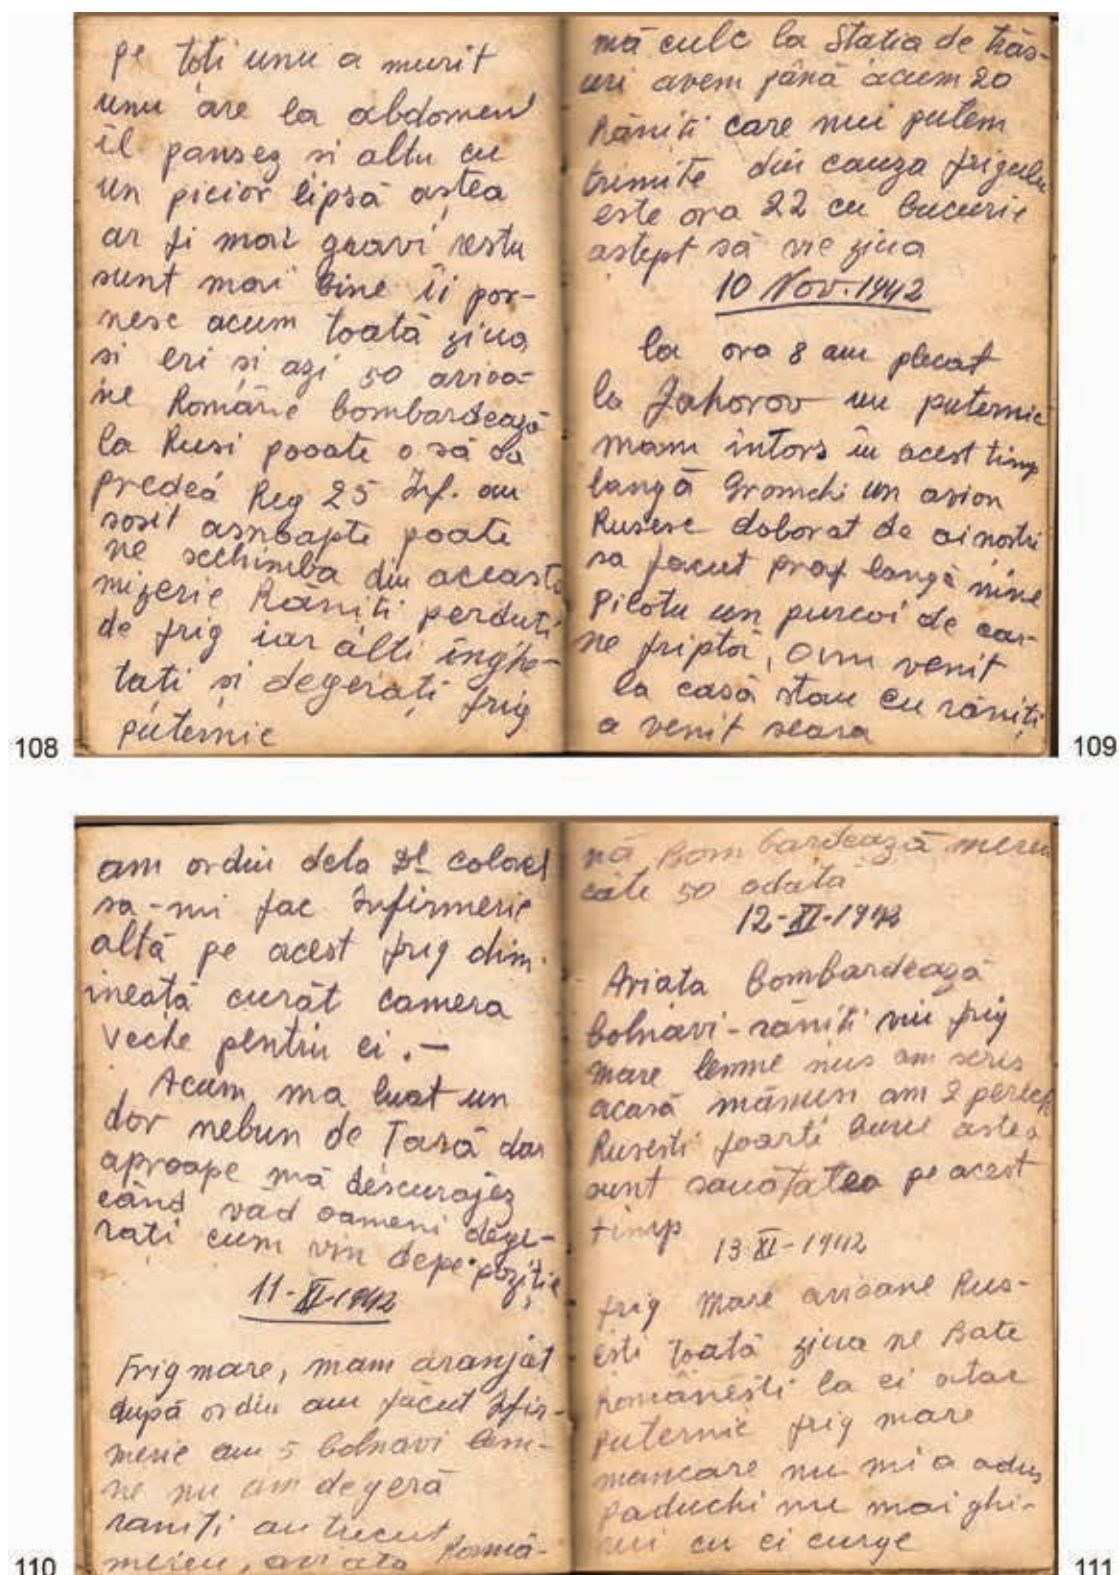 pe toti unu a murit
unu are la abdomen
îl pansez si altu cu
un picior lipsă astea
ar fi mai gravi restu
sunt mai bine îi por-
nesc acum toată ziua
si eri și azi 50 avioa-
ne Române bombardează
la Rusi pooate o să sa
predea Reg 25 Inf. au
sosit asnoapte poate
ne schimba din aceasta
mizerie Răniți perduti
de frig iar alti înghe-
tati și degerați frig
puternic
108
mă culc la Statia de trăs-
uri avem până acum 20
Răniti care nui putem
trimite din cauza frigului
este ora 22 cu bucurie
astept să vie ziua
10 Nov. 1942
la ora 8 am plecat
la Jahorov un puternic
mam intors în acest timp
langă Gromchi un avion
Rusesc doborat de ai nostri
sa facut praf langă mine
Pilotu un purcoi de car-
ne friptă, am venit
la casă stau cu răniți
a venit seara
109
am ordin dela Dl colonel
sa-mi fac Infirmerie
altă pe acest frig dim-
ineată curăt camera
veche pentru ei . —
Acum ma luat un
dor nebun de Tară dar
aproape mă descurajez
când văd oameni dege-
rati cum vin depe poziție
11-XI-1942
Frig mare, mam aranjat
după ordin am făcut Ifir-
merie am 5 bolnavi lem-
ne nu am degeră
raniti au trecut
mereu, aviata Româ-
110
nă Bombardează mereu
câte 50 odată
12-XI-1942
Aviata bombardează
bolnavi-răniti vin frig
mare lemne nus am scris
acasă mănusi am 2 perechi
Rusesti foarti bune astea
sunt sanătatea pe acest
timp
13 XI-1942
frig mare avioane Rus-
esti toată ziua ne Bate
Românești la ei atac
puternic frig mare
mancare nu mi a adus
Paduchi nu mai ghi-
nui cu ei curge
111